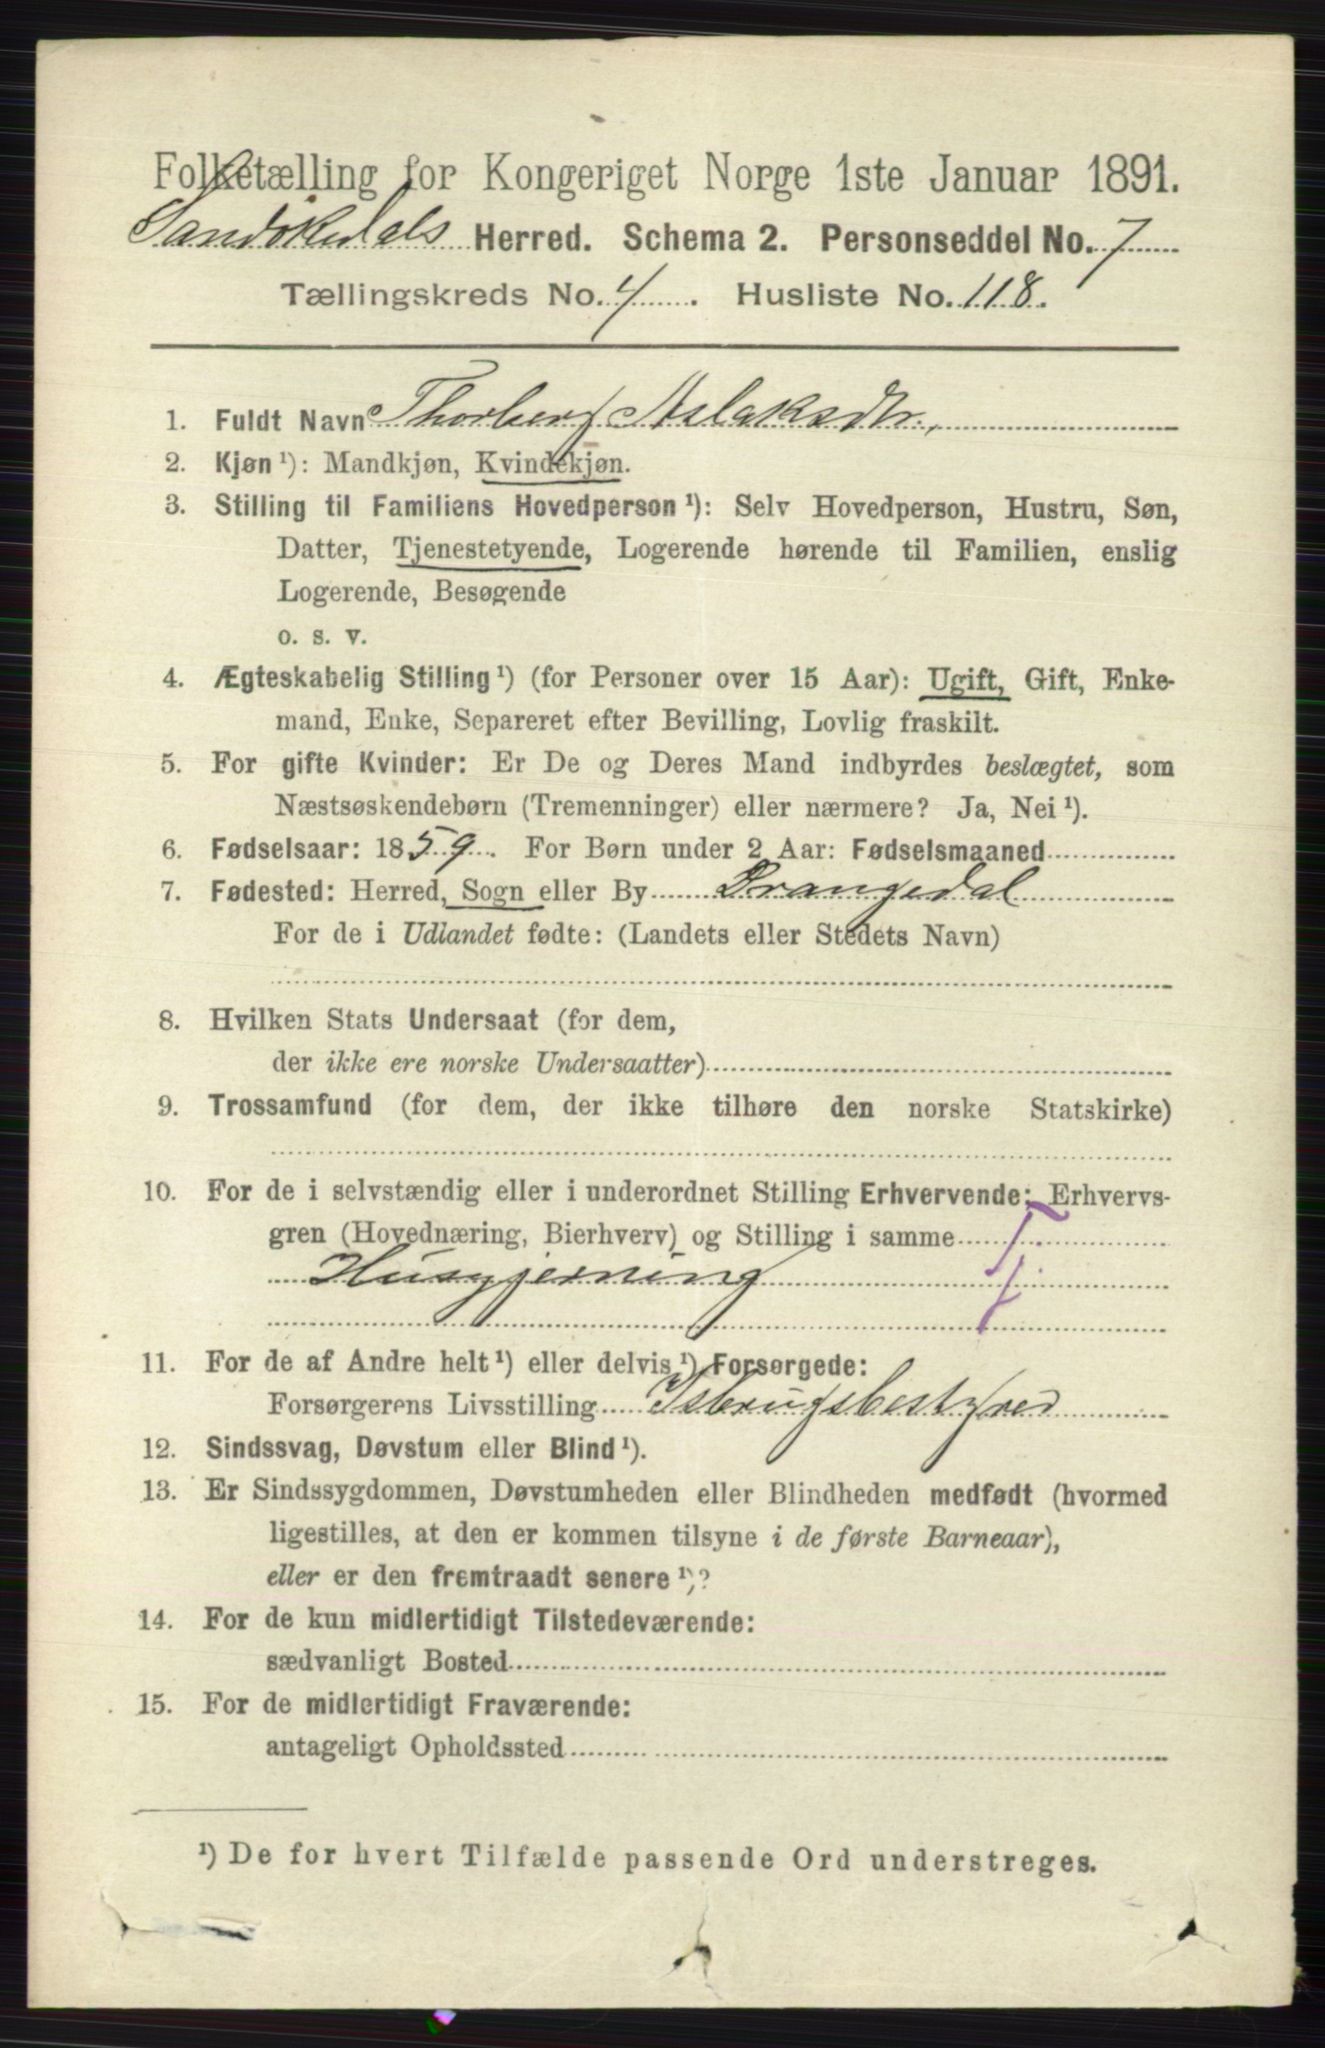 Folketælling for Kongeriget Norge 1ste Januar 1891.
Sandøkedals Herred. Schema 2. Personseddel No. 7
Tællingskreds No. 4 . Husliste No. 118.
1. Fuldt Navn Thorberg Aslaksdtr.,
2. Kjøn ¹): Mandkjøn, Kvindekjøn.
3. Stilling til Familiens Hovedperson ¹): Selv Hovedperson, Hustru, Søn,
Datter, Tjenestetyende, Logerende hørende til Familien, enslig
Logerende, Besøgende
o. s. v.
4. Ægteskabelig Stilling ¹) (for Personer over 15 Aar): Ugift, Gift, Enke-
mand, Enke, Separeret efter Bevilling, Lovlig fraskilt.
5. For gifte Kvinder: Er De og Deres Mand indbyrdes beslægtet, som
Næstsøskendebørn (Tremenninger) eller nærmere? Ja, Nei ¹).
6. Fødselsaar: 1859. For Børn under 2 Aar: Fødselsmaaned
7. Fødested: Herred, Sogn eller By Drangedal
For de i Udlandet fødte: (Landets eller Stedets Navn)
8. Hvilken Stats Undersaat (for dem,
der ikke ere norske Undersaatter)
9. Trossamfund (for dem, der ikke tilhøre den norske Statskirke)
10. For de i selvstændig eller i underordnet Stilling Erhvervende: Erhvervs-
gren (Hovednæring, Bierhverv) og Stilling i samme
Husgjerning
11. For de af Andre helt ¹) eller delvis ¹) Forsørgede:
Forsørgerens Livsstilling Isbrugsbestyrer
12. Sindssvag, Døvstum eller Blind ¹).
13. Er Sindssygdommen, Døvstumheden eller Blindheden medfødt (hvormed
ligestilles, at den er kommen tilsyne i de første Barneaar),
eller er den fremtraadt senere ¹)?
14. For de kun midlertidigt Tilstedeværende:
sædvanligt Bosted
15. For de midlertidigt Fraværende:
antageligt Opholdssted
¹) De for hvert Tilfælde passende Ord understreges.